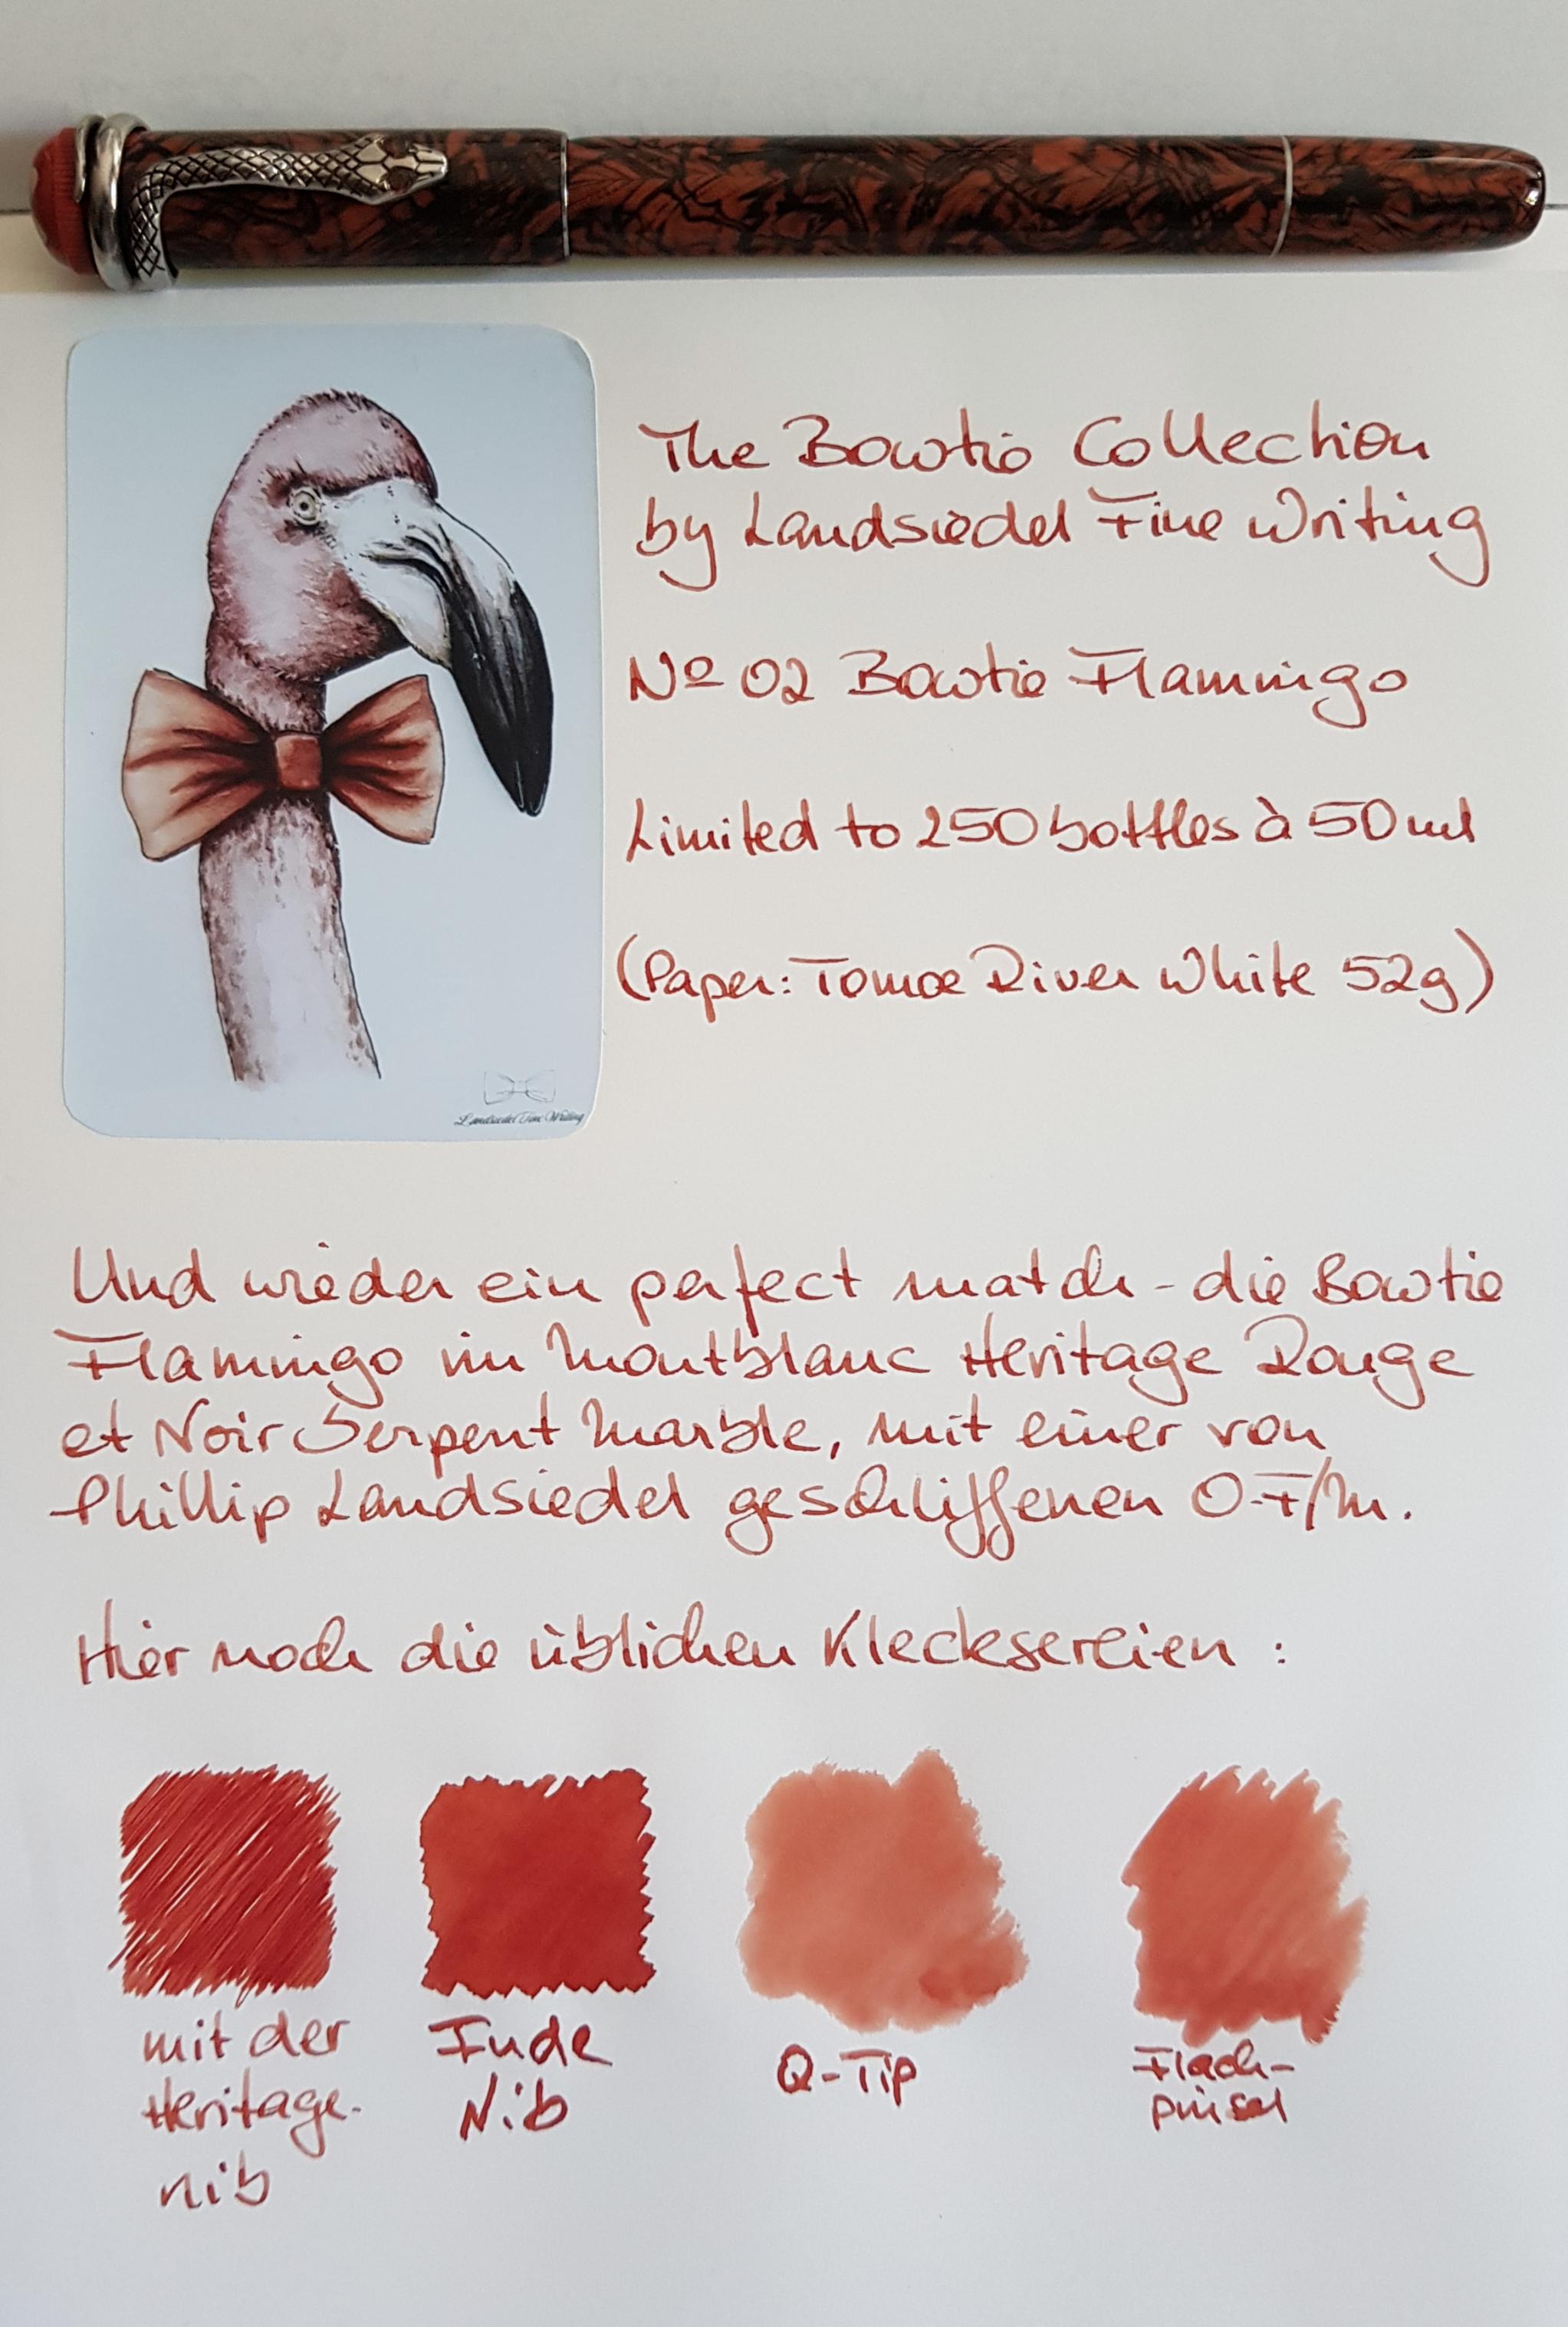 The Bowtie Collection
by Landsiedel Fine Writing
Nº 02 Bowtie Flamingo
Limited to 250 bottles à 50 ml
(Paper: Tomoe River White 52g)
Landsiedel Fine Writing
Und wieder ein perfect match - die Bowtie
Flamingo im Montblanc Heritage Rouge
et Noir Serpent Marble, mit einer von
Phillip Landsiedel geschliffenen O-F/M.
Hier noch die üblichen Klecksereien :
mit der
Heritage-
nib
Fude
Nib
Q-Tip
Flach-
pinsel